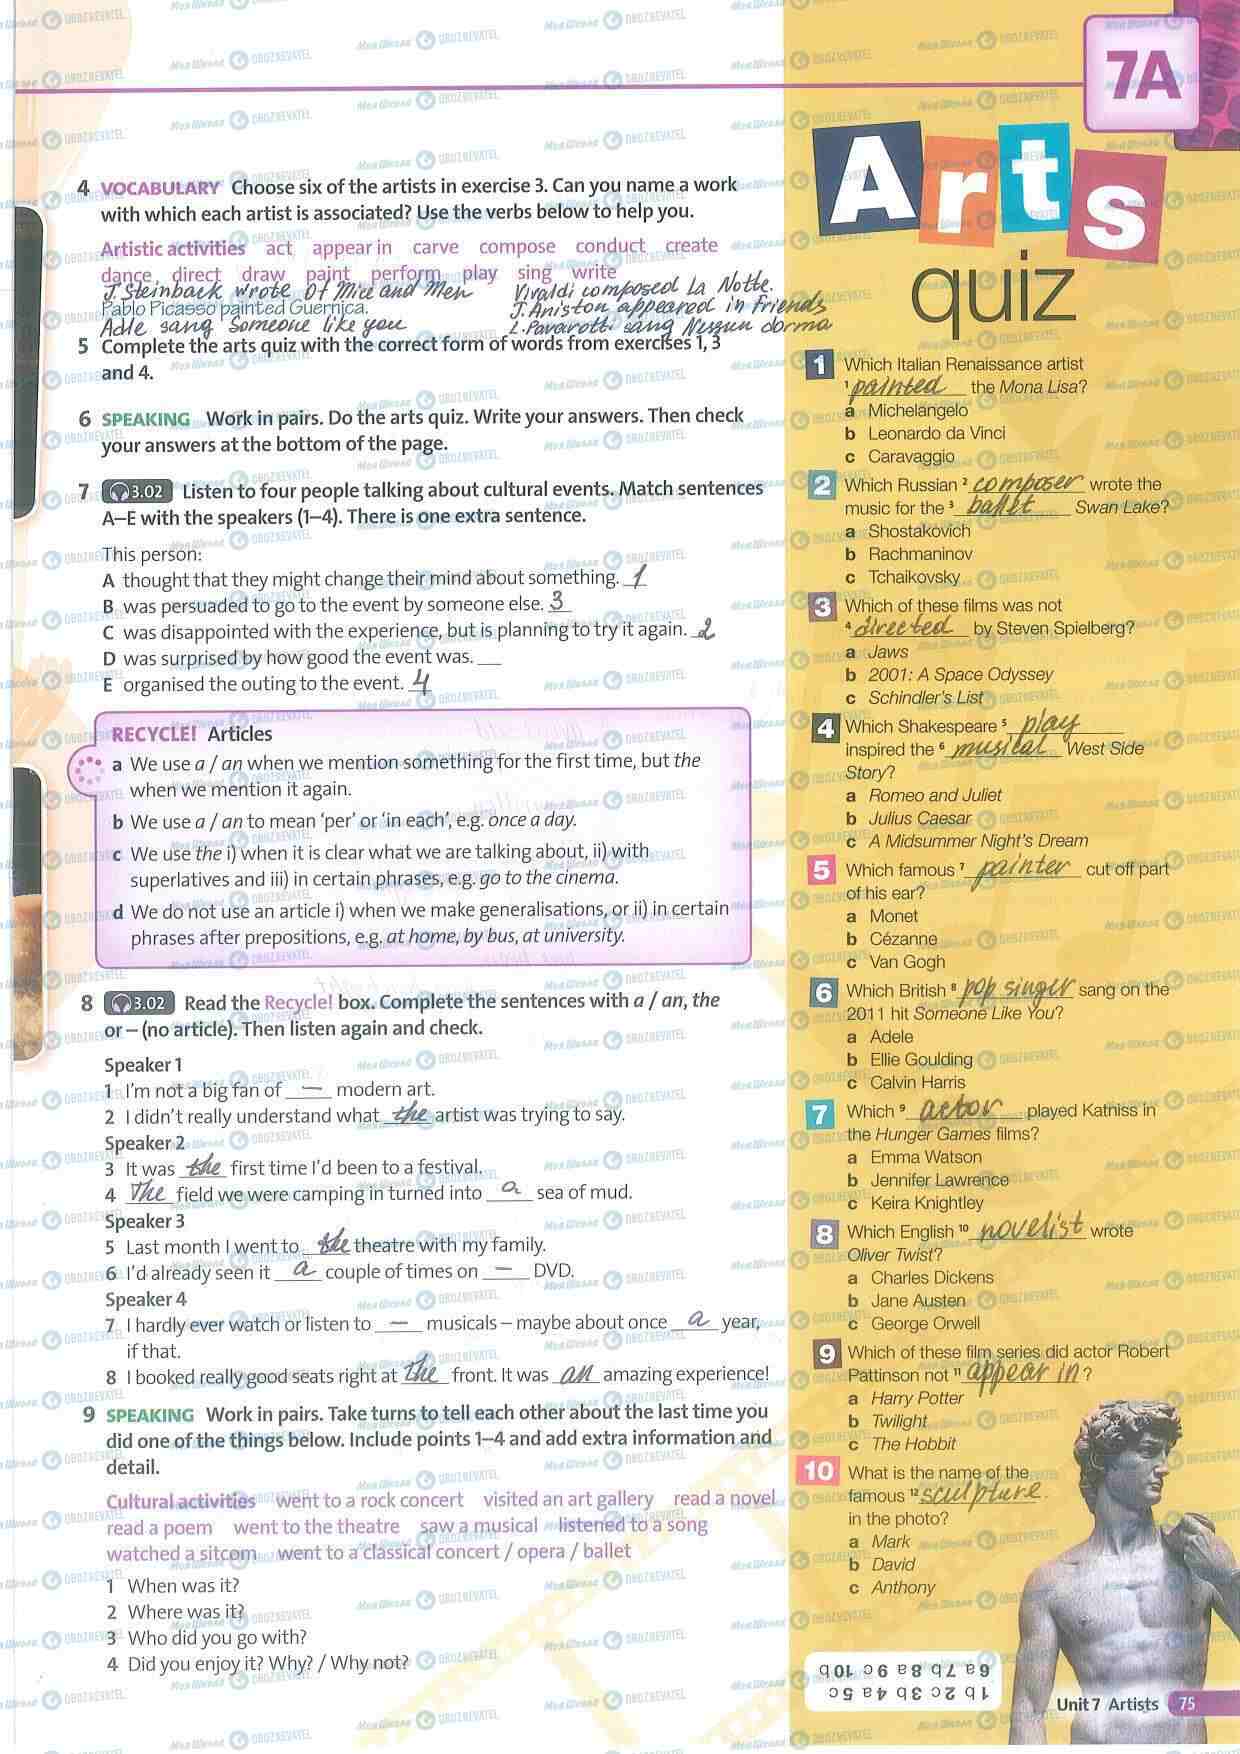 7A
4 VOCABULARY Choose six of the artists in exercise 3. Can you name a work
with which each artist is associated? Use the verbs below to help you.
Artistic activities act appear in carve compose conduct create
dance direct draw paint perform play sing write
J. Steinback wrote Of Mice and Men
Vivaldi composed La Notte.
Pablo Picasso painted Guernica.
J. Aniston appeared in Friends
Adle sang Someone like you
L. Pavarotti sang Nessun dorma
5 Complete the arts quiz with the correct form of words from exercises 1, 3
and 4.
6 SPEAKING Work in pairs. Do the arts quiz. Write your answers. Then check
your answers at the bottom of the page.
7 3.02 Listen to four people talking about cultural events. Match sentences
A–E with the speakers (1–4). There is one extra sentence.
This person:
A thought that they might change their mind about something. 1
B was persuaded to go to the event by someone else. 3
C was disappointed with the experience, but is planning to try it again. 2
D was surprised by how good the event was. ___
E organised the outing to the event. 4
RECYCLE! Articles
a We use a / an when we mention something for the first time, but the
when we mention it again.
b We use a / an to mean ‘per’ or ‘in each’, e.g. once a day.
c We use the i) when it is clear what we are talking about, ii) with
superlatives and iii) in certain phrases, e.g. go to the cinema.
d We do not use an article i) when we make generalisations, or ii) in certain
phrases after prepositions, e.g. at home, by bus, at university.
8 3.02 Read the Recycle! box. Complete the sentences with a / an, the
or – (no article). Then listen again and check.
Speaker 1
1 I’m not a big fan of — modern art.
2 I didn’t really understand what the artist was trying to say.
Speaker 2
3 It was the first time I’d been to a festival.
4 The field we were camping in turned into a sea of mud.
Speaker 3
5 Last month I went to the theatre with my family.
6 I’d already seen it a couple of times on — DVD.
Speaker 4
7 I hardly ever watch or listen to — musicals – maybe about once a year,
if that.
8 I booked really good seats right at the front. It was an amazing experience!
9 SPEAKING Work in pairs. Take turns to tell each other about the last time you
did one of the things below. Include points 1–4 and add extra information and
detail.
Cultural activities went to a rock concert visited an art gallery read a novel
read a poem went to the theatre saw a musical listened to a song
watched a sitcom went to a classical concert / opera / ballet
1 When was it?
2 Where was it?
3 Who did you go with?
4 Did you enjoy it? Why? / Why not?
Arts
quiz
1 Which Italian Renaissance artist
1 painted the Mona Lisa?
a Michelangelo
b Leonardo da Vinci
c Caravaggio
2 Which Russian 2 composer wrote the
music for the 3 ballet Swan Lake?
a Shostakovich
b Rachmaninov
c Tchaikovsky
3 Which of these films was not
4 directed by Steven Spielberg?
a Jaws
b 2001: A Space Odyssey
c Schindler’s List
4 Which Shakespeare 5 play
inspired the 6 musical West Side
Story?
a Romeo and Juliet
b Julius Caesar
c A Midsummer Night’s Dream
5 Which famous 7 painter cut off part
of his ear?
a Monet
b Cézanne
c Van Gogh
6 Which British 8 pop singer sang on the
2011 hit Someone Like You?
a Adele
b Ellie Goulding
c Calvin Harris
7 Which 9 actor played Katniss in
the Hunger Games films?
a Emma Watson
b Jennifer Lawrence
c Keira Knightley
8 Which English 10 novelist wrote
Oliver Twist?
a Charles Dickens
b Jane Austen
c George Orwell
9 Which of these film series did actor Robert
Pattinson not 11 appear in ?
a Harry Potter
b Twilight
c The Hobbit
10 What is the name of the
famous 12 sculpture
in the photo?
a Mark
b David
c Anthony
1 b 2 c 3 b 4 a 5 c
6 a 7 b 8 a 9 c 10 b
Unit 7 Artists 75